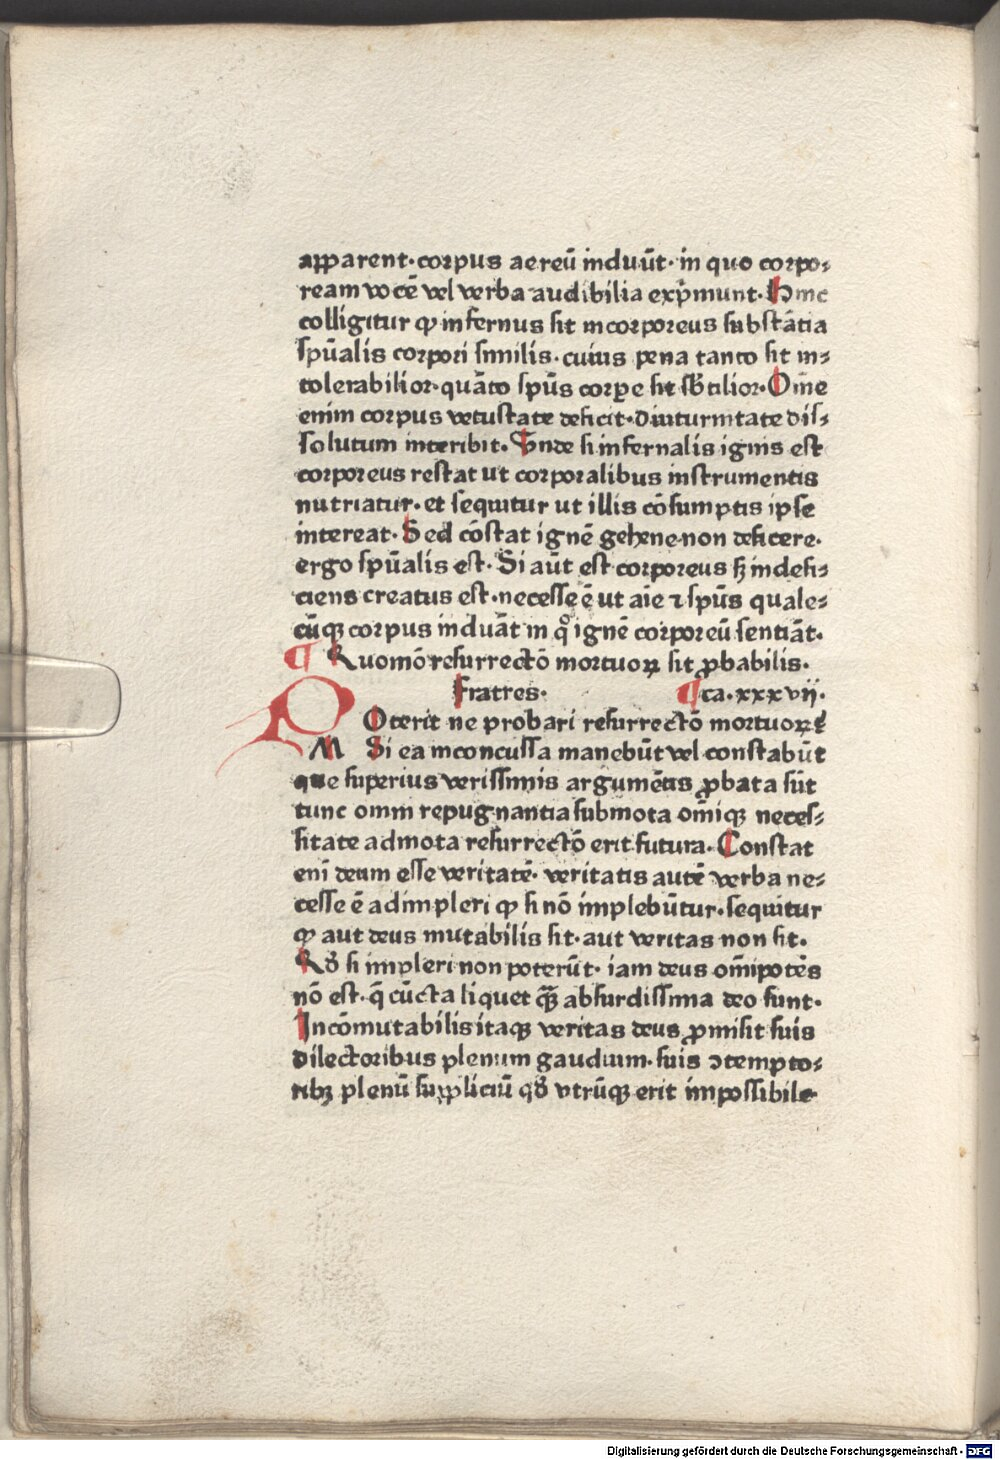 apparent·corpus aereū induūt·in quo corpo-
ream vocē vel verba audibilia exp̄munt·Hinc
colligitur ꝙ infernus sit incorporeus substātia
spūalis corpori similis·cuius pena tanto sit in-
tolerabilior·quāto spūs corꝑe sit sbtilior·Om̄e
enim corpus vetustate deficit·diuturnitate dis-
solutum interibit·Unde si infernalis ignis est
corporeus restat ut corporalibus instrumentis
nutriatur·et sequitur ut illis cōsumptis ipse
intereat·Sed cōstat ignē gehene·non deficere·
ergo spūalis est·Si aūt est corporeus sꝫ indefi-
ciens creatus est·necesse ē ut aīe ⁊ spūs quale-
cūꝙ corpus induāt in qͦ ignē corporeū sentiāt·
¶ Quomō resurrectō mortuoꝝ sit ꝓbabilis·
Fratres· ¶ca·xxxvij·
POterit ne probari resurrectō mortuoꝝ
M Si ea inconcussa manebūt vel constabūt
que superius verissimis argumētis ꝓbata sūt
tunc omni repugnantia submota om̄iqꝫ neces-
sitate admota resurrectō erit futura·Constat
enī deum esse veritatē·veritatis autē verba ne-
cesse ē adimpleri ꝙ si nō implebūtur·sequitur
ꝙ aut deus mutabilis sit·aut veritas non sit·
Qd̄ si impleri non poterūt·iam deus om̄ipotēs
nō est·q̄ cūcta liquet qꝫ absurdissima deo sunt·
Incōmutabilis itaqꝫ veritas deus ꝓmisit suis
dilectoribus plenum gaudium·suis ↄtempto-
ribꝫ plenū suppliciū qd̄ vtrūqꝫ erit impossibile
Digitalisierung gefördert durch die Deutsche Forschungsgemeinschaft - DFG